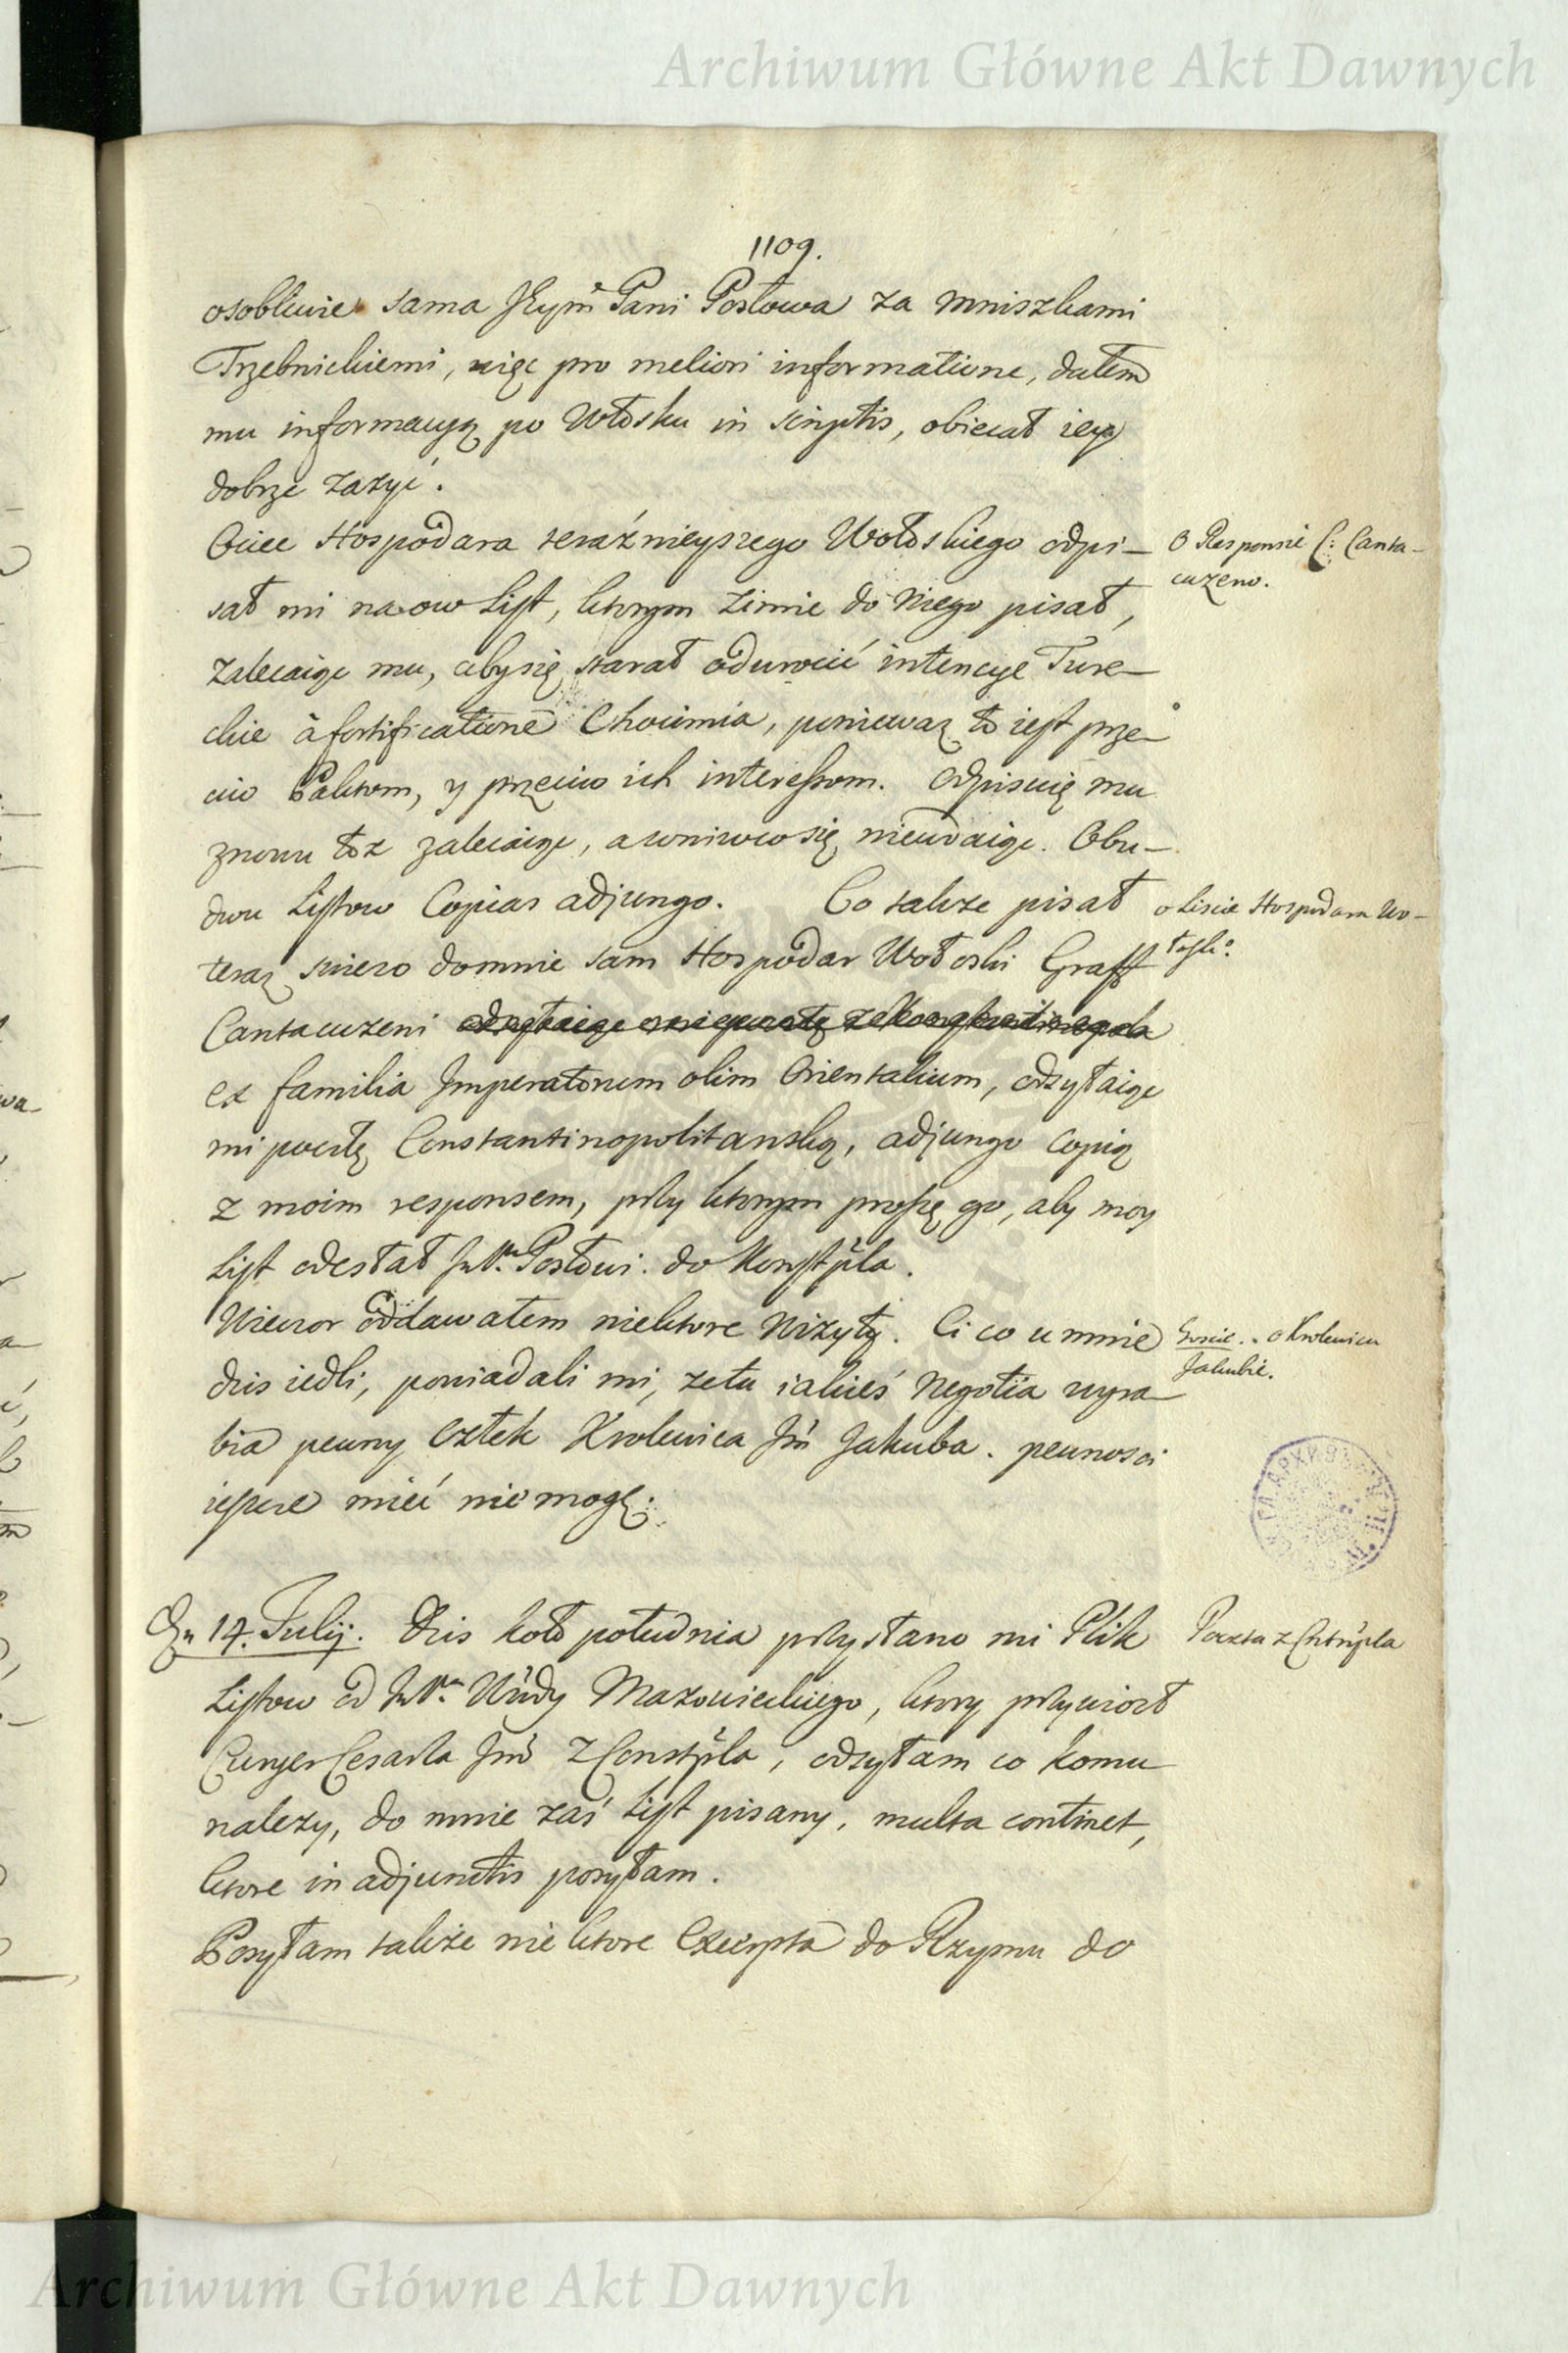 Archiwum Główne Akt Dawnych
1109.
osobliwie sama JEym̃ Pani Posłowa za mniszkami
Trzebnickiemi, więc pro meliori informatione, dałem
mu informacyą po Włosku in scriptis, obiecał iey
dobrze zażyć.
Ociec Hospodara teraźnieyszego Wołoskiego odpi-
sał mi na ow List, ktorym zimie do niego pisał,
zalecaiąc mu, aby się starał odwrocić intencye Ture-
ckie à fortificatione Chocimia, poniewaz to iest prze-
ciw Paktom, y przeciw ich interessom. Odpisuię mu
znowu toż zalecaiąc, a w niwco się niewdaiąc. Obu-
dwu Listow Copias adjungo. Co także pisał
teraz swiezo do mnie sam Hospodar Wołoski Graff
Cantacuzeni
ex familia Imperatorum olim Orientalium, odsyłaiąc
mi pocztę Constantinopolitanską, adjungo copią
z moim responsem, przy ktorym proszę go, aby moy
List odesłał Posłowi do Konstpla.
Wieczor oddawałem niektore wizyty. Ci co u mnie
dzis iedli, powiadali mi, ze tu iakieś negotia wyra-
bia pewny człek Krolewica Jm̃ Jakuba. pewnosci
ieszcze mieć nie mogę.
O Responsie C: Canta-
cuzeno.
o Liscie Hospodara Wo-
łoskiº.
Goscie.. o Krolewicu
Jakubie.
Dn 14. Julij. Dzis koło południa przysłano mi Plik
Listow od Wwdy Mazowieckiego, ktory przywiozł
Curyer Cesarza Jm̃ z Constpla, odsyłam co komu
nalezy, do mnie zaś List pisany, multa continet,
ktore in adjunctis posyłam.
Posyłam także niektore Excerpta do Rzymu do
Poczta z Cnstpla
Archiwum Główne Akt Dawnych